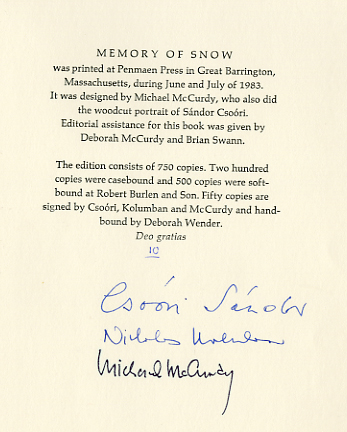 MEMORY OF SNOW
was printed at Penmaen Press in Great Barrington,
Massachusetts, during June and July of 1983.
It was designed by Michael McCurdy, who also did
the woodcut portrait of Sándor Csoóri.
Editorial assistance for this book was given by
Deborah McCurdy and Brian Swann.
The edition consists of 750 copies. Two hundred
copies were casebound and 500 copies were soft-
bound at Robert Burlen and Son. Fifty copies are
signed by Csoóri, Kolumban and McCurdy and hand-
bound by Deborah Wender.
Deo gratias
10
Csoóri Sándor
Nicholas Kolumban
Michael McCurdy